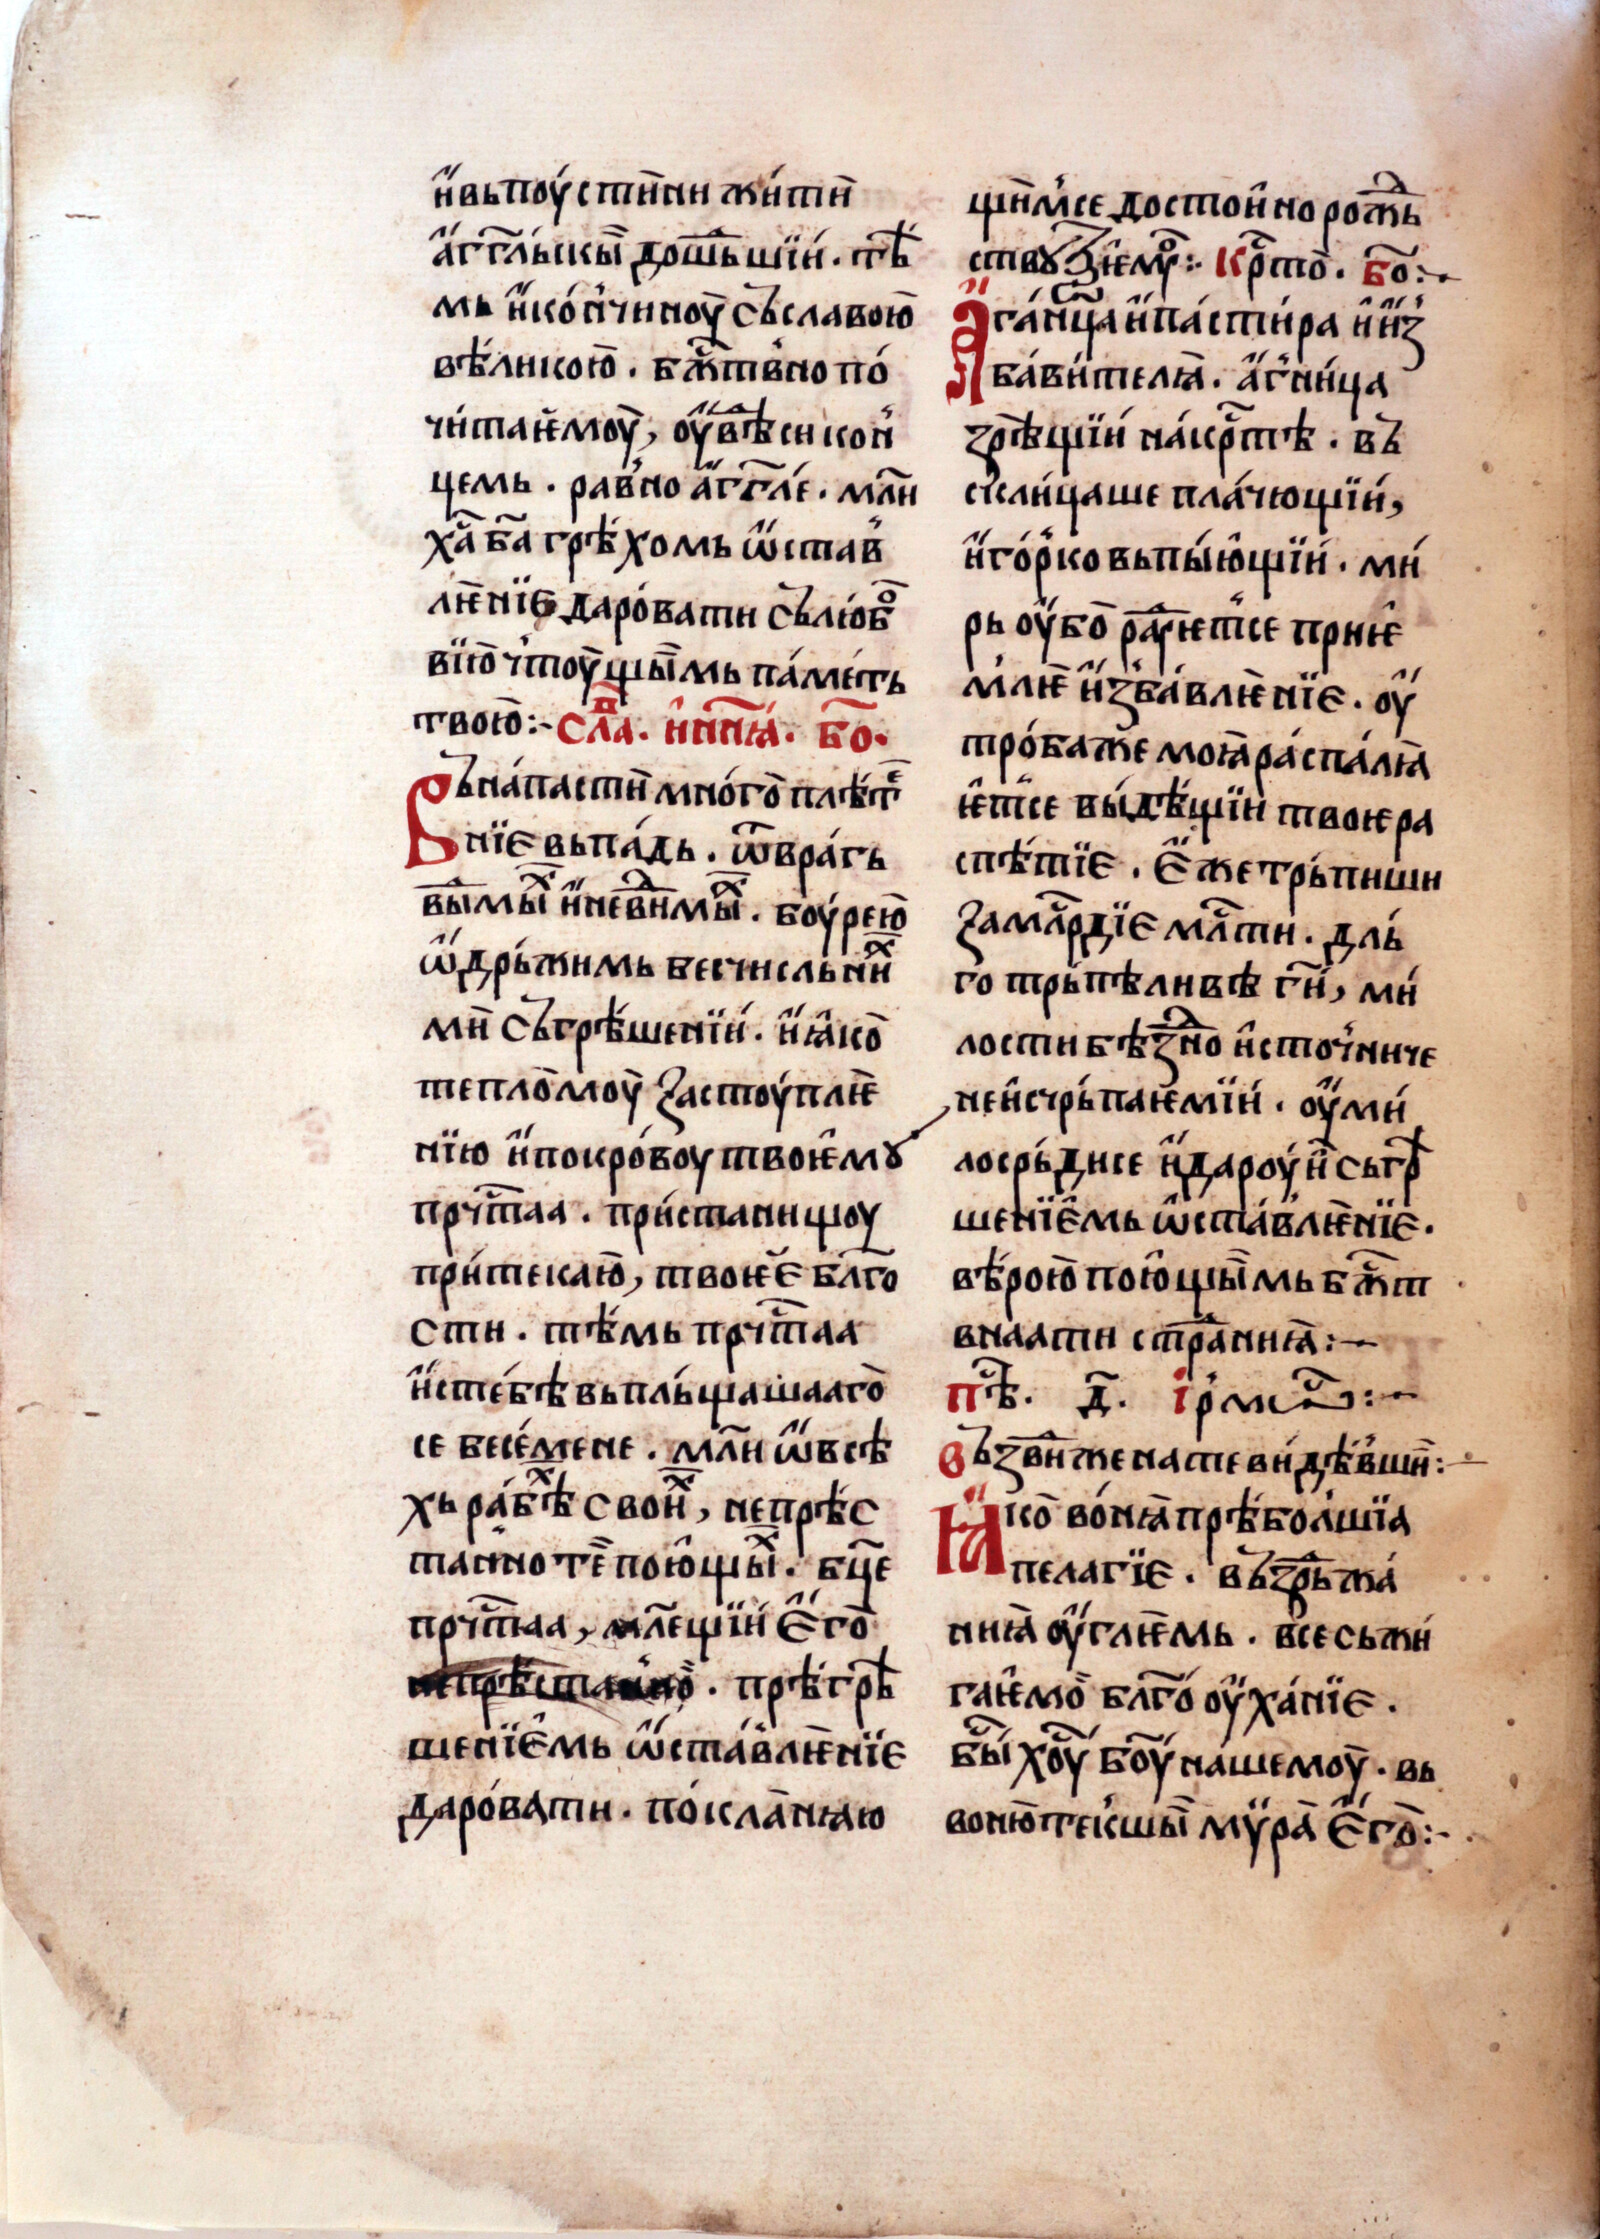 и҆вьпоу́стн҃нн жи́тїи
а҆гг҃льскы̏ до́шьшїи́. тѣ́
мь и҆ко́н̾чиноу̀ съславою̀
вѣ́ликою̀. бж҃тв̾но по́
чи́таѥмоу̀, ѹ҆вѣ́си кон̾
цемь. рав̾но а҆гг҃ле́. мл҃и
ха҃ ба҃ грѣ́хомь ѡ҆став̾
лѥ́нїѥ даро́вати сълю́бо
вїю̀ ч̾тоу́щы̏мь па́меть
твою̀:- сла҃. и҆нн҃ꙗ. бо҃.
Въна́пасти̏ мно́го̀ плѣ́те
нїѥ вьпа́дь. ѿвра́гь
ви҃мы̏х и҆неви҃мы̏х. боу́рею̀
ѡ҆дрь́жимь бесчисльни̏х
мѝ съгрѣ́шенїи́. и҆ꙗ҆ко̀
тепло̀моу̀ застоу́плѥ
нїю и҆покро́воу твоѥ̂мꙋ
прчⷭ҇таа. при́станищоу
при́текаю̀, твоѥ̏ѐ бл҃го
сти. тѣ́мь прчⷭ҇таа
и҆сте́бѣ вьплъ́щашааго̀
се бесе́мене. мл҃и ѡ҆всѣ
хь ра́бѣ̏х свои̏х, непрѣ́с
танно тѐ пою̂щы̏х. бц҃е
прчⷭ҇таа, мл҃ещїи́ ѐ҆го̀
непрѣ́станно̏. прѣ́грѣ
шенїѐмь ѡ҆ста́влѥ́нїѥ
даро́вати. по́кла́нꙗю
щи̏мсе досто́и̂но рожⷣь
ствꙋ Зѥ̂мꙋ:. крⷭ҇то̀. бо҃:-
Ага́н҃ца и҆па́сти́ра и҆и҆з̾
ба́ви́телꙗ̀. а҆г̾ни́ца
зрѣ́щїи́ на́крⷭ҇тѣ. въ
скли́цаше пла́чющїи́,
и҆го́рко вьпы́ю̂щїи́. ми́
рь ѹ҆бо̀ раⷣꙋѥт̾се приѥ̂
м̾лѥ̀ и҆з̾ба́влѥ́нїѥ. ѹ҆
тро́баже моꙗ̀ ра́спа́лꙗ̀
ѥ̂т̾се вы́дѣ́щїи твоѥра
спѣ́тїѥ. ѐ҆же трь́пиши
замлⷭ҇рдїѥ млⷭ҇ти. длъ́
го трь́пѣливѣ гн҃и́, ми́
лости бѣ́зⷣно и҆сточ̾ниче
неи҆счрь́паѥмїи́. ѹ҆ми́
лосрь́дисе и҆дароу́и̏ сьгрѣ
шенїѐмь ѡ҆ста́влѥ́нїѥ.
вѣ́рою̀ пою̂щы̏мь бж҃т
внаати стрⷭ҇аниꙗ̀:-
пѣⷭ҇. д҃. ірмо́ⷭ:-
Въздви́же на те ви́дѣ́вши̏:
Ꙗко̀ во́нꙗ̀ прѣ́бол̾шїа
пелагїѥ. възⷣрьжа́
ниꙗ̀ ѹ҆глѥ̀мь. всѐ сьжи́
гаѥ̂мо̏ бл҃го́ ѹ҆ха́нїѥ.
бы̏ⷭ хоу҃ боу҃ на́шемоу̀. вь
воню̀ тек̾шы̏ мѵ́ра̀ ѐ҆го̀:-